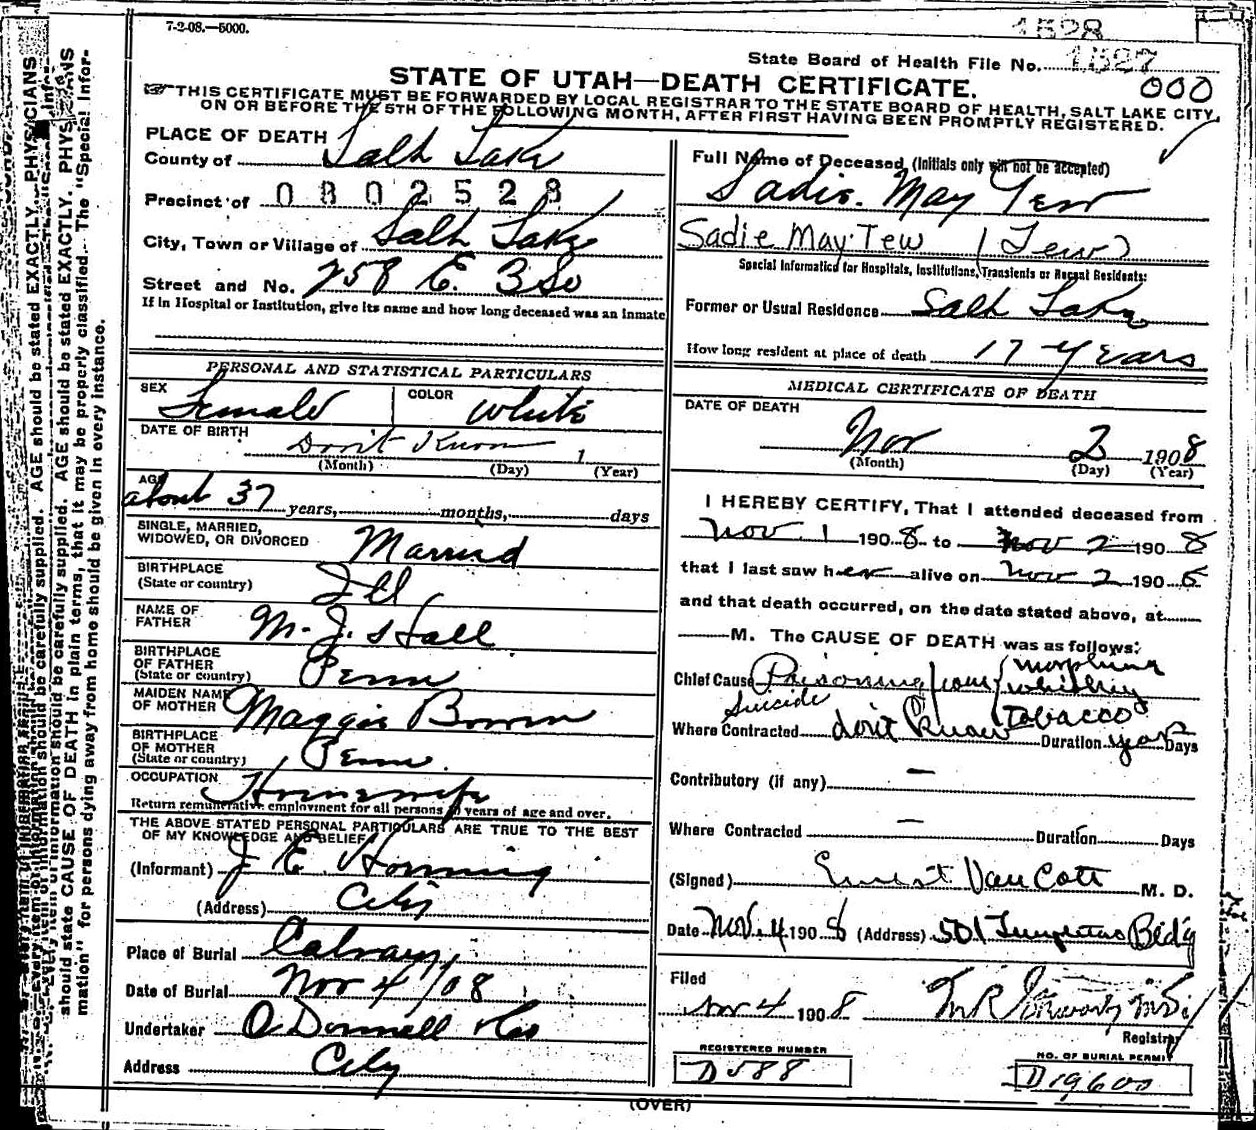 7-2-08.—5000.
1528
State Board of Health File No. 1527
000
STATE OF UTAH—DEATH CERTIFICATE.
THIS CERTIFICATE MUST BE FORWARDED BY LOCAL REGISTRAR TO THE STATE BOARD OF HEALTH, SALT LAKE CITY,
ON OR BEFORE THE 5TH OF THE FOLLOWING MONTH, AFTER FIRST HAVING BEEN PROMPTLY REGISTERED.
PLACE OF DEATH
County of Salt Lake
Precinct of 0802528
City, Town or Village of Salt Lake
Street and No. 258 E. 3 So
If in Hospital or Institution, give its name and how long deceased was an inmate
PERSONAL AND STATISTICAL PARTICULARS
SEX Female COLOR White
DATE OF BIRTH Don't Know 1
(Month) (Day) (Year)
AGE about 37 years, months, days
SINGLE, MARRIED, WIDOWED, OR DIVORCED Married
BIRTHPLACE (State or country) Ill
NAME OF FATHER M. J. Hall
BIRTHPLACE OF FATHER (State or country) Penn
MAIDEN NAME OF MOTHER Maggie Bowen
BIRTHPLACE OF MOTHER (State or country) Penn.
OCCUPATION Housewife
Return remunerative employment for all persons 10 years of age and over.
THE ABOVE STATED PERSONAL PARTICULARS ARE TRUE TO THE BEST
OF MY KNOWLEDGE AND BELIEF
(Informant) J. E.
(Address) City
Place of Burial Calvary
Date of Burial Nov 4/08
Undertaker O'Donnell & Co
Address City
Full Name of Deceased, (Initials only will not be accepted)
Sadie. May Tew
Sadie May Tew (Tew)
Special Information for Hospitals, Institutions, Transients or Recent Residents:
Former or Usual Residence Salt Lake
How long resident at place of death 17 years
MEDICAL CERTIFICATE OF DEATH
DATE OF DEATH
Nov 2 1908
(Month) (Day) (Year)
I HEREBY CERTIFY, That I attended deceased from
Nov. 1 1908 to Nov 2 1908
that I last saw her alive on Nov 2 1908
and that death occurred, on the date stated above, at
M. The CAUSE OF DEATH was as follows:
morphine
Chief Cause Poisoning from whiskey
Suicide tobacco
Where Contracted don't know Duration years Days
Contributory (if any) —
Where Contracted — Duration Days
(Signed) Ernest Van Cott M. D.
Date Nov. 4 1908 (Address) 501 Templeton Bldg
Filed
Nov 4 1908
Registrar
REGISTERED NUMBER
D588
NO. OF BURIAL PERMIT
D19600
(OVER)
AGE should be stated EXACTLY. PHYSICIANS
should state CAUSE OF DEATH in plain terms, that it may be properly classified. The "Special Infor-
mation" for persons dying away from home should be given in every instance.